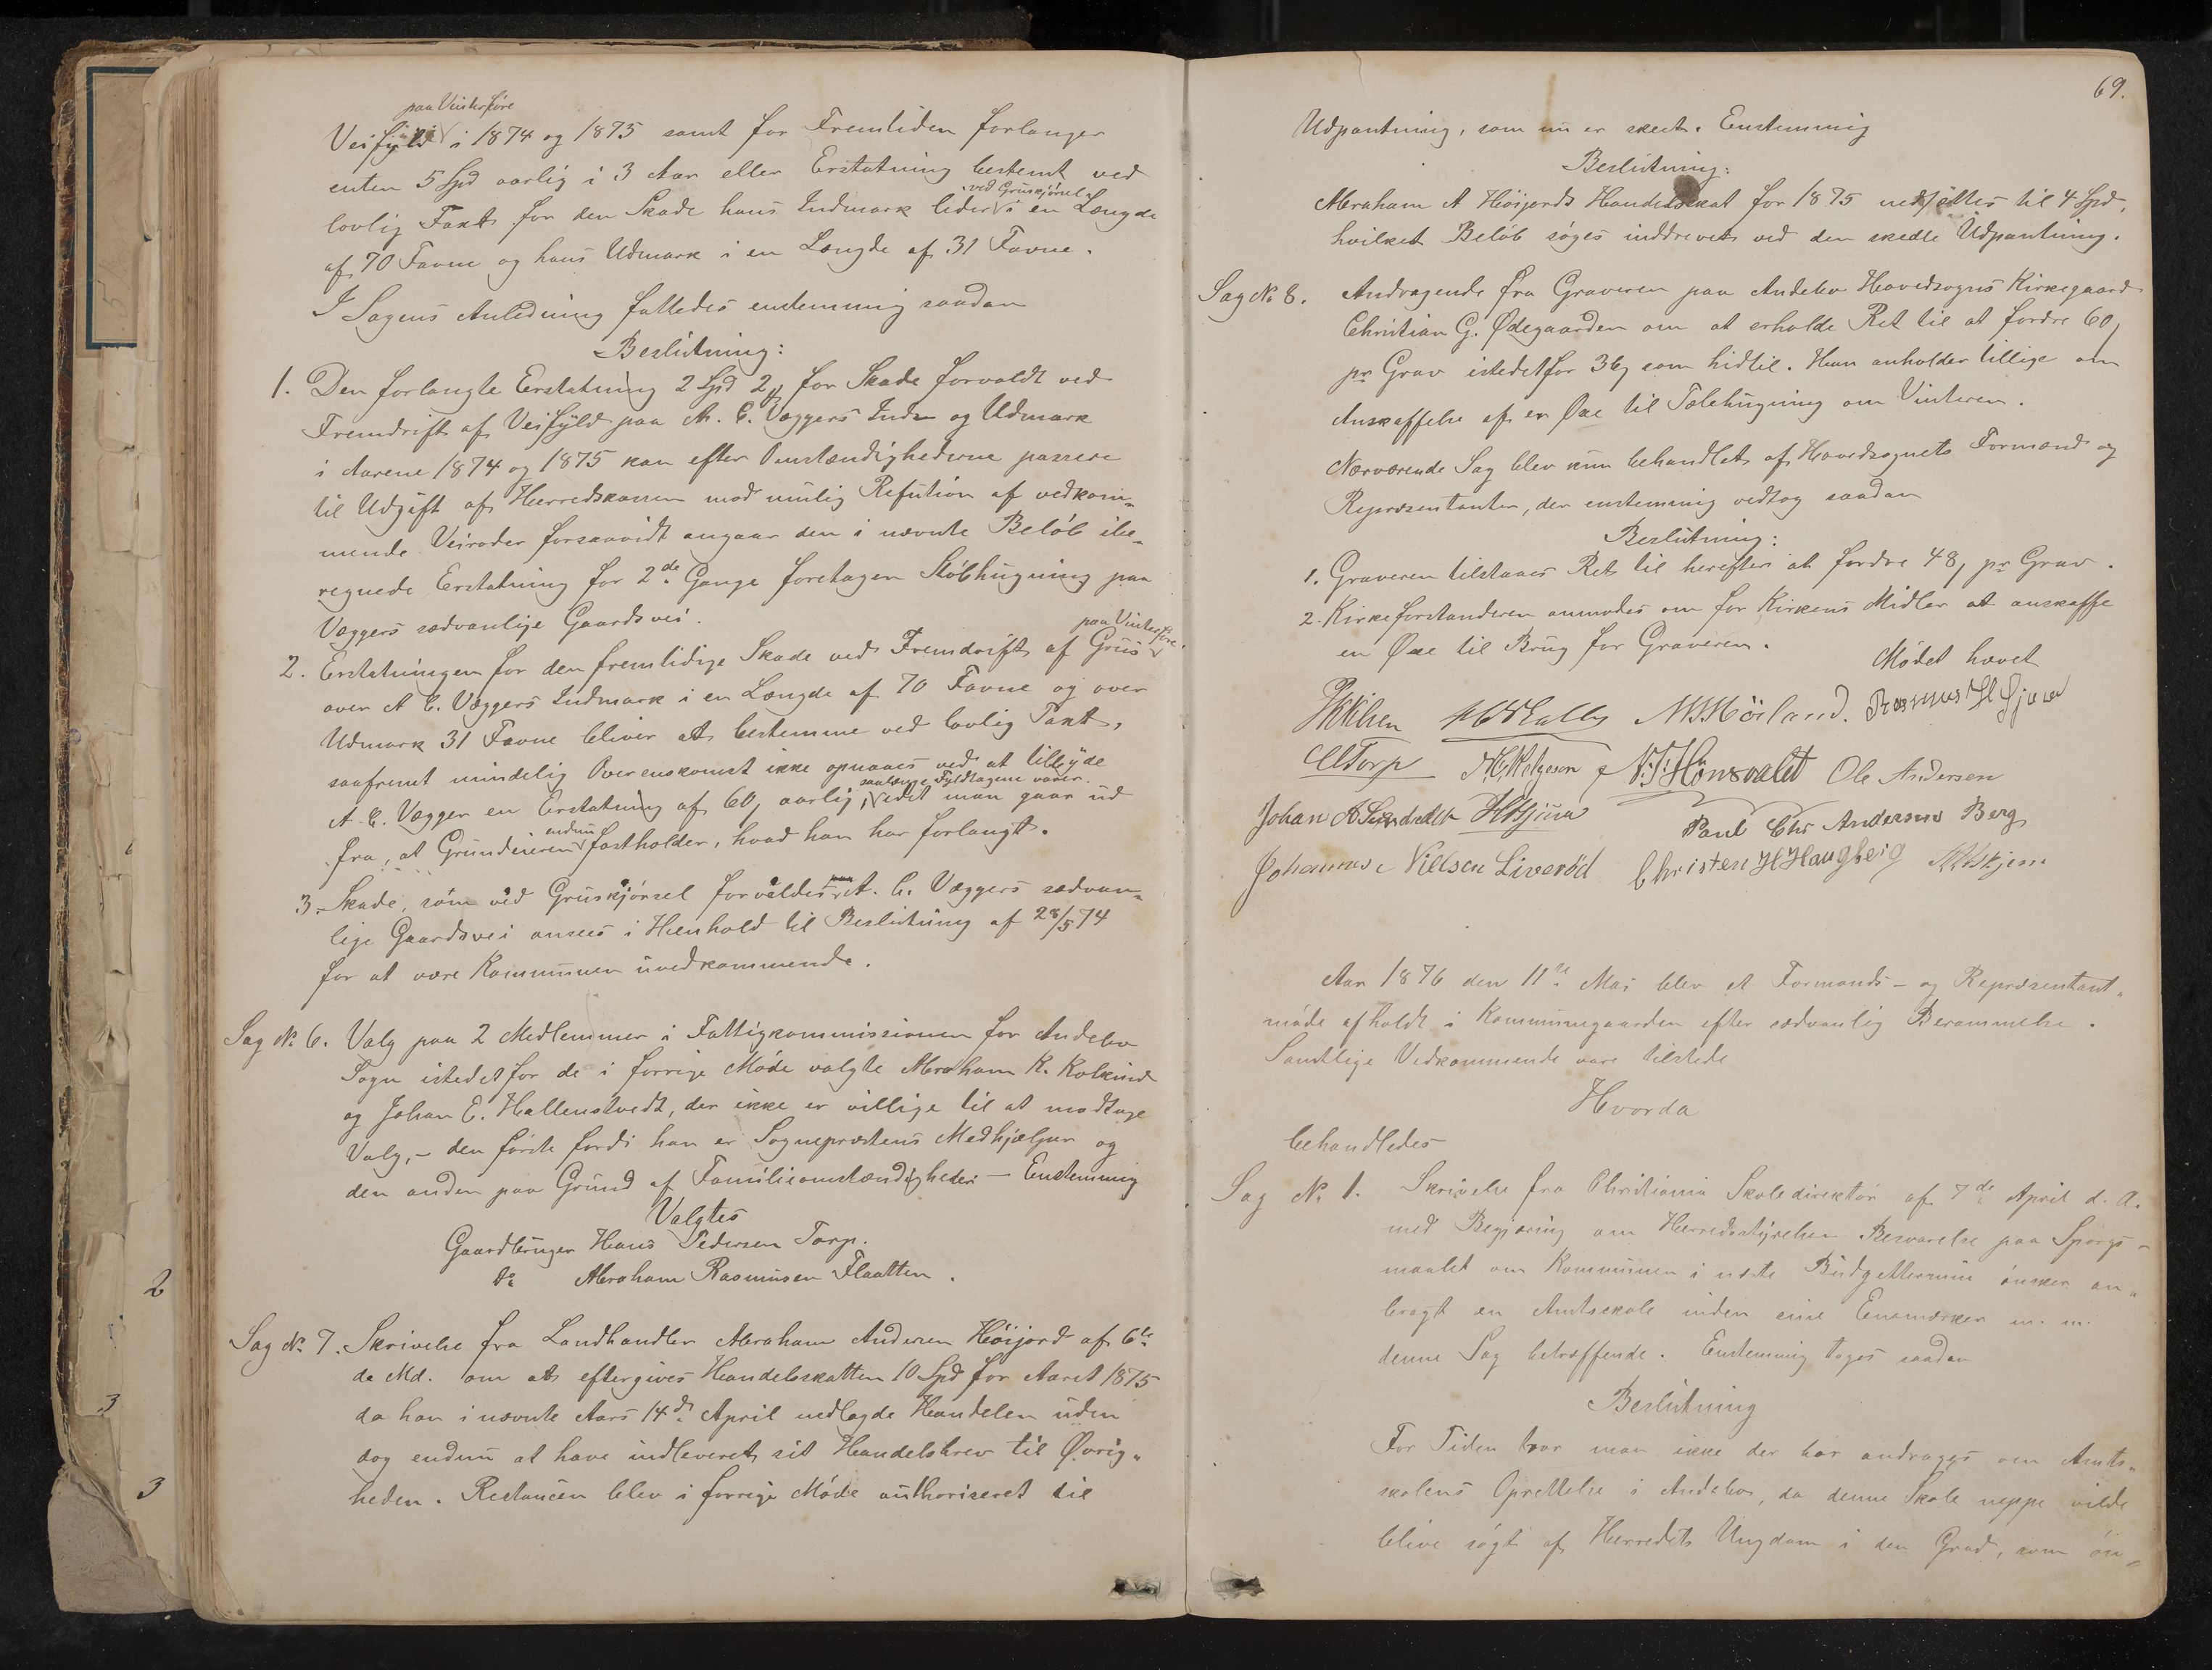 paa Vinterføre
Veifyld i 1874 og 1875 samt for Fremtiden forlanger
enten 5 Spd aarlig i 3 Aar eller Erstatning bestemt ved
ved Gruskjørsel
lovlig Taxt for den Skade hans Indmark lider i en Længde
af 70 Favne og hans Udmark i en Længde af 31 Favne.
I Sagens Anledning fattedes enstemmig saadan
Beslutning:
1. Den forlangte Erstatning 2 Spd 2 for Skade forvoldt ved
Fremdrift af Veifyld paa A. C. Væggers Ind- og Udmark
i Aarene 1874 og 1875 kan efter Omstændighederne passere
til Udgift af Herredskassen mod mulig Refution af vedkom-
mende Veiroder forsaavidt angaar den i nævnte Beløb ibe-
regnede Erstatning for 2de Gange foretagen Støbhugning paa
Væggers sædvanlige Gaardsvei.
paa Vinterføre.
2. Erstatningen for den fremtidige Skade ved Fremdrift af Grus
over A C. Væggers Indmark i en Længde af 70 Favne og over
Udmark 31 Favne bliver at bestemme ved lovlig Taxt,
saafremt mindelig Overenskomst ikke opnaaes ved at tilbyde
saalænge Fyldtagene varer.
A. C. Vægger en Erstatning af 60 aarlig, idet man gaar ud
endnu
fra, at Grundeieren fastholder, hvad han har forlangt.
3. Skade, som ved Gruskjørsel forvoldes paa A. C. Væggers sædvan-
lige Gaardsvei ansees i Henhold til Beslutning af 28/5 74
for at være Kommunen uvedkommende.
Sag No 6. Valg paa 2 Medlemmer i Fattigkommissionen for Andebu
Sogn istedetfor de i forrige Møde valgte Abraham K. Kolkind
og Johan E. Hallenstvedt, der ikke er villige til at modtage
Valg, - den første fordi han er Sogneprestens Medhjælper og
den anden paa Grund af Familieomstændigheder - Enstemmig
Valgtes
Gaardbruger Hans Pedersen Torp.
do Abraham Rasmusen Flaatten.
Sag No 7. Skrivelse fra Landhandler Abraham Andersen Høijord af 6te
ds Md. om at eftergives Handelsskatten 10 Spd for Aaret 1875
da han i nævnte Aars 14de April nedlagde Handelen uden
dog endnu at have indleveret sit Handelsbrev til Øvrig-
heden. Restancen blev i forrige Møde authoriseret til
69.
Udpantning, som nu er skeet. Enstemmig
Beslutning:
Abraham A Høijords Handelsskat for 1875 nedsættes til 4 Spd,
hvilket Beløb søges inddrevet ved den skedte Udpantning.
Sag No 8. Andragende fra Graveren paa Andebu Hovedsogns Kirkegaard
Christian G. Ødegaarden om at erholde Ret til at fordre 60
pr Grav istedetfor 36 som hidtil. Han anholder tillige om
Anskaffelse af en Øxe til Telehugning om Vinteren.
Nærværende Sag blev kun behandlet af Hovedsognets Formænd og
Repræsentanter, der enstemmig vedtog saadan
Beslutning:
1. Graveren tilstaaes Ret til herefter at fordre 48 pr Grav.
2. Kirkeforstanderen anmodes om for Kirkens Midler at anskaffe
en Øxe til Brug for Graveren.
Mødet hævet
N. Mørland. Rasmus H Gjerver
Torp Helgeson N. T. Hønsvalet Ole Andersen
Johan A Paul Chr Andersens Berg
Johannes Nielsen Liverød Christen H Haugberg
Aar 1876 den 11te Mai blev et Formands- og Repræsentant-
møde afholdt i Kommunegaarden efter sædvanlig Berammelse.
Samtlige Vedkommende vare tilstede
Hvorda
behandledes
Sag No 1. Skrivelse fra Christiania Skoledirektør af 7de April d. A.
med Begjæring om Herredsstyrelsens Besvarelse paa Spørgs-
maalet om Kommunen i næste Budgettermin ønsker an-
bragt en Amtsskole inden sine Enemærker m. m.
denne Sag betræffende. Enstemmig toges saadan
Beslutning
For Tiden tror man ikke der bør andrages om Amts-
skolens Oprettelse i Andebu, da denne Skole neppe vilde
blive søgt af Herredets Ungdom i den Grad, som øn-
2
3
3